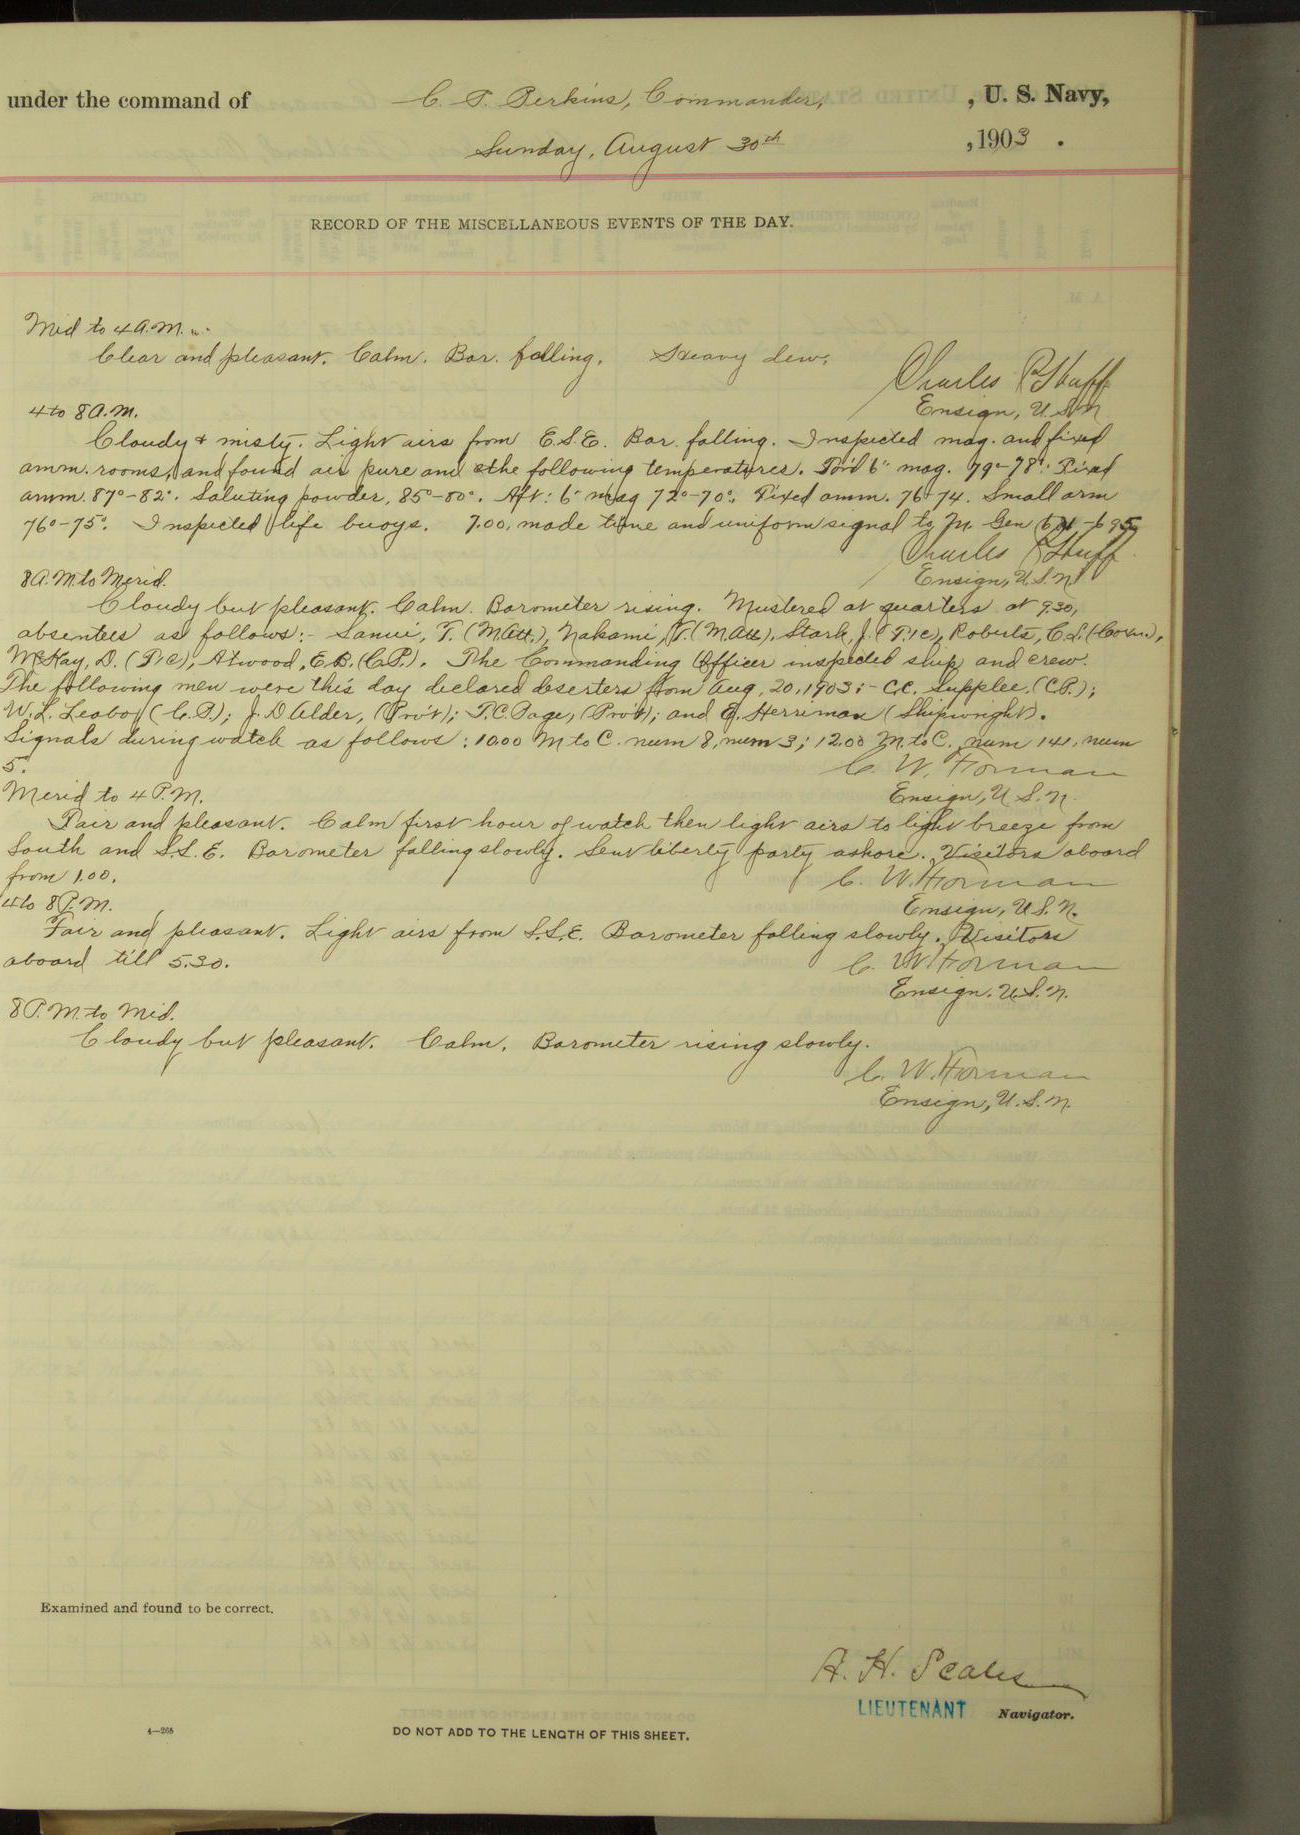 under the command of C. P. Perkins, Commander, , U. S. Navy,
Sunday, August 30th , 1903 .
RECORD OF THE MISCELLANEOUS EVENTS OF THE DAY.
Mid to 4 A.M.
Clear and pleasant. Calm. Bar. falling. Heavy dew.
Charles P. Huff
Ensign, U.S.N.
4 to 8 A.M.
Cloudy & misty. Light airs from E.S.E. Bar. falling. Inspected mag. and fixed
amm. rooms, and found air pure and the following temperatures. For'd 6" mag. 79°-78°: Fixed
amm. 87°-82°. Saluting powder, 85°-80°. Aft: 6" mag 72°-70°, Fixed amm. 76-74. Small arm
76°-75°. Inspected life buoys. 7.00, made time and uniform signal to M. Gen
Charles P. Huff
Ensign, U.S.N.
8 A.M. to Merid.
Cloudy but pleasant. Calm. Barometer rising. Mustered at quarters at 9.30,
absentees as follows:- Sanui, T. (M.Att.), Nakami, T. (M.Att), Stark, J. (F.1c), Roberts, C.L. (Coxn.),
McKay, D. (F1c), Atwood, E.B. (C.P.). The Commanding Officer inspected ship and crew.
The following men were this day declared deserters from Aug. 20, 1903:- C.C. Supplee, (C.P.);
W. L. Leabo, (C.P.); J. D Alder, (Prov't); F.C. Page, (Prov't); and E. Herriman (Shipwright).
Signals during watch as follows: 10.00 M to C. num 8, num 3; 12.00 M. to C. num 141, num
5.
C. W. Forman
Ensign, U.S.N.
Merid to 4 P.M.
Fair and pleasant. Calm first hour of watch then light airs to light breeze from
South and S.S.E. Barometer falling slowly. Sent liberty party ashore. Visitors aboard
from 1.00.
C. W. Forman
Ensign, U.S.N.
4 to 8 P.M.
Fair and pleasant. Light airs from S.S.E. Barometer falling slowly. Visitors
aboard till 5.30.
C. W. Forman
Ensign. U.S.N.
8 P.M. to Mid.
Cloudy but pleasant. Calm. Barometer rising slowly.
C. W. Forman
Ensign, U.S.N.
Examined and found to be correct.
A. H. Scales
LIEUTENANT Navigator.
4—268
DO NOT ADD TO THE LENGTH OF THIS SHEET.